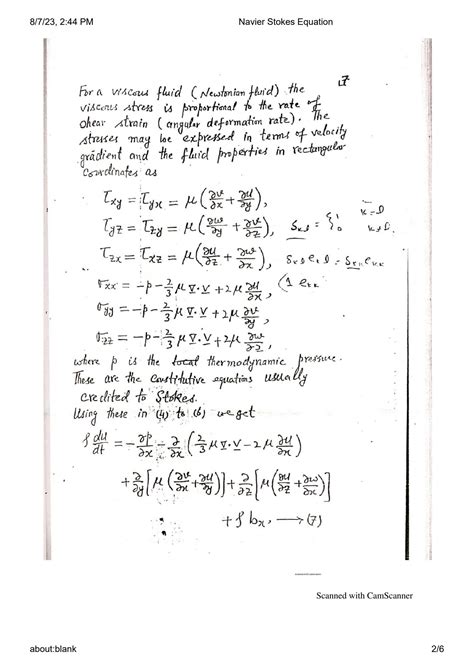 8/7/23, 2:44 PM Navier Stokes Equation
For a viscous fluid (Newtonian fluid) the
viscous stress is proportional to the rate of
shear strain (angular deformation rate). The
stresses may be expressed in terms of velocity
gradient and the fluid properties in rectangular
Coordinates as
τxy = τyx = μ(∂v/∂x + ∂u/∂y),
τyz = τzy = μ(∂w/∂y + ∂v/∂z), Skl = {1 k=l 0 k≠l.
τzx = τxz = μ(∂u/∂z + ∂w/∂x), Skl ekl = Skk ekk
σxx = -p - 2/3 μ ∇·V + 2μ ∂u/∂x, (1 ekk
σyy = -p - 2/3 μ ∇·V + 2μ ∂v/∂y,
σzz = -p - 2/3 μ ∇·V + 2μ ∂w/∂z,
where p is the local thermodynamic pressure.
These are the constitutive equations usually
credited to Stokes.
Using these in (4) to (6) we get
ρ du/dt = -∂p/∂x - ∂/∂x (2/3 μ ∇·V - 2μ ∂u/∂x)
+ ∂/∂y [μ(∂v/∂x + ∂u/∂y)] + ∂/∂z [μ(∂u/∂z + ∂w/∂x)]
+ ρ bx, ⟶ (7)
Scanned with CamScanner
about:blank 2/6